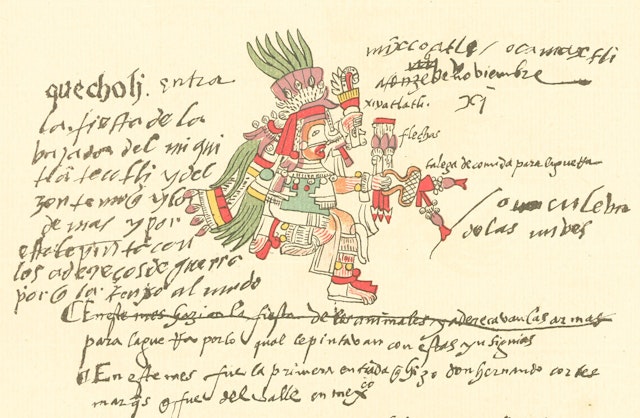 quecholi. entra
la fiesta de la
bajada del miqui
tlatecotli y del
zontemoq y los
demas y por
esto le pintan con
los adereços de guerra
porq la trajo al mundo
mixcoatle / ocamaxtli
a onze de noviembre
xiuatlatli.
XI
flechas
talega de comida para la guerra
o culebra
de las nubes
¶ En este mes hazian la fiesta de los animales y adereçavan las armas
para la guerra por lo qual le pintavan con estas ynsignias
¶ En este mes fue la primera entrada q hizo don hernando cortes
marqs q fue del valle en mexco